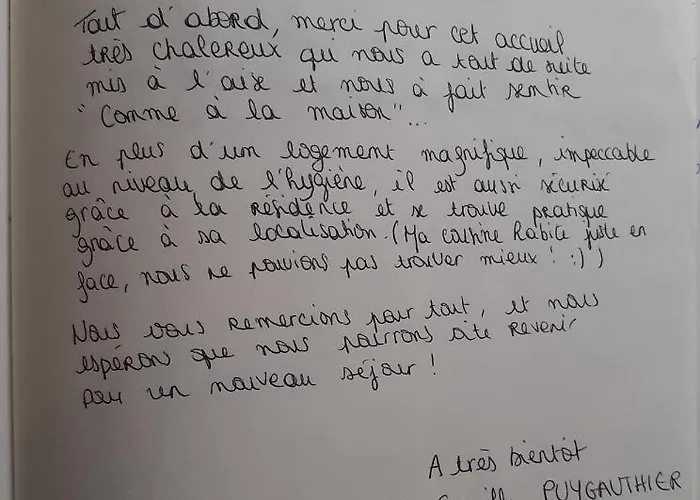 Tout d'abord, merci pour cet accueil
très chalereux qui nous a tout de suite
mis à l'aise et nous à fait sentir
"Comme à la maison"...
En plus d'un logement magnifique, impeccable
au niveau de l'hygiène, il est aussi sécurisé
grâce à la résidence et se trouve pratique
grâce à sa localisation. (Ma cousine habite juste en
face, nous ne pouvions pas trouver mieux ! :) )
Nous vous remercions pour tout, et nous
espérons que nous pourrons vite revenir
pour un nouveau séjour !
A très bientôt
PUYGAUTHIER